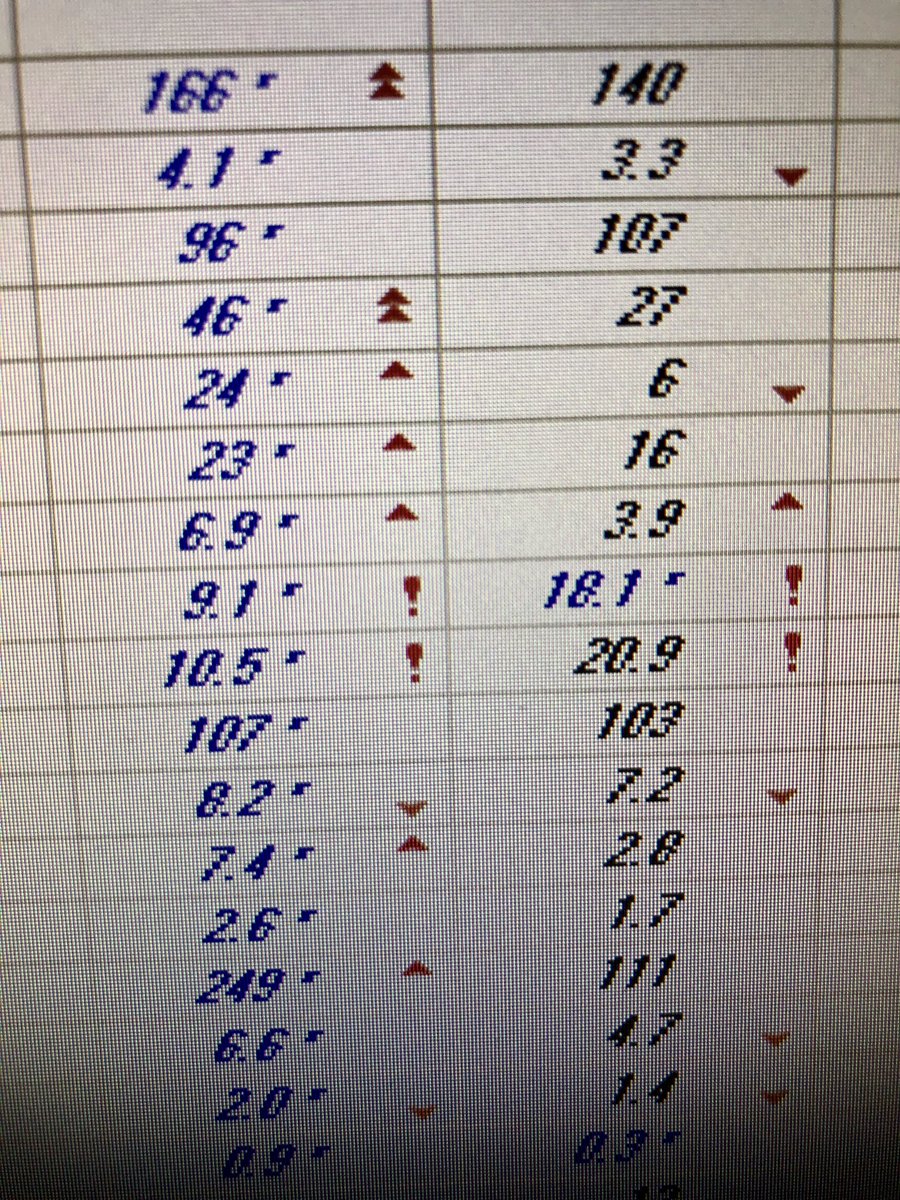 166 r 140
4.1 r 3.3
96 r 107
46 r 27
24 r 6
23 r 16
6.9 r 3.9
9.1 r ! 18.1 r !
10.5 r ! 20.9 !
107 r 103
8.2 r 7.2
7.4 r 2.8
2.6 r 1.7
249 r 111
6.6 r 4.7
2.0 r 1.4
0.9 r 0.3 r